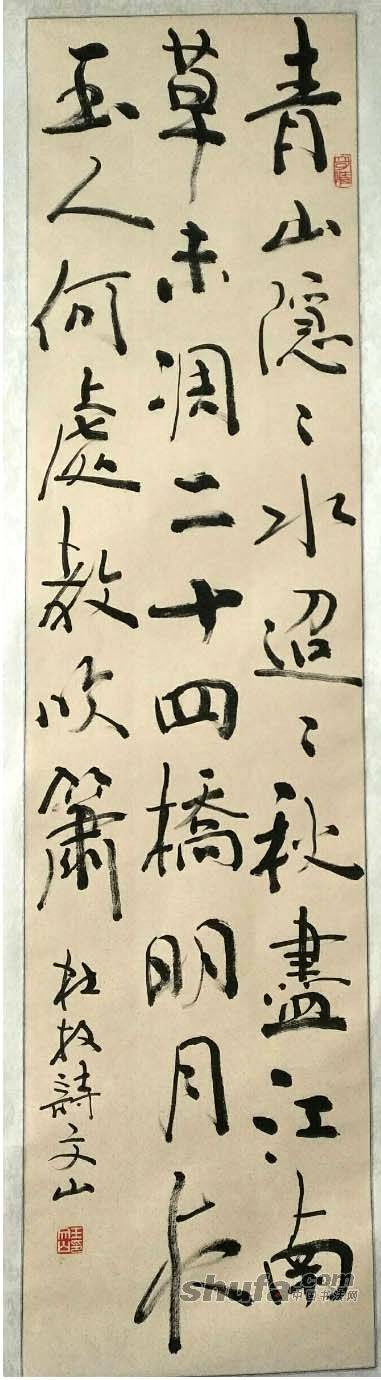 青山隱〻水迢〻秋盡江南
草未凋二十四橋明月夜
玉人何處教吹簫
杜牧詩文山
shufa.com
中国书法网